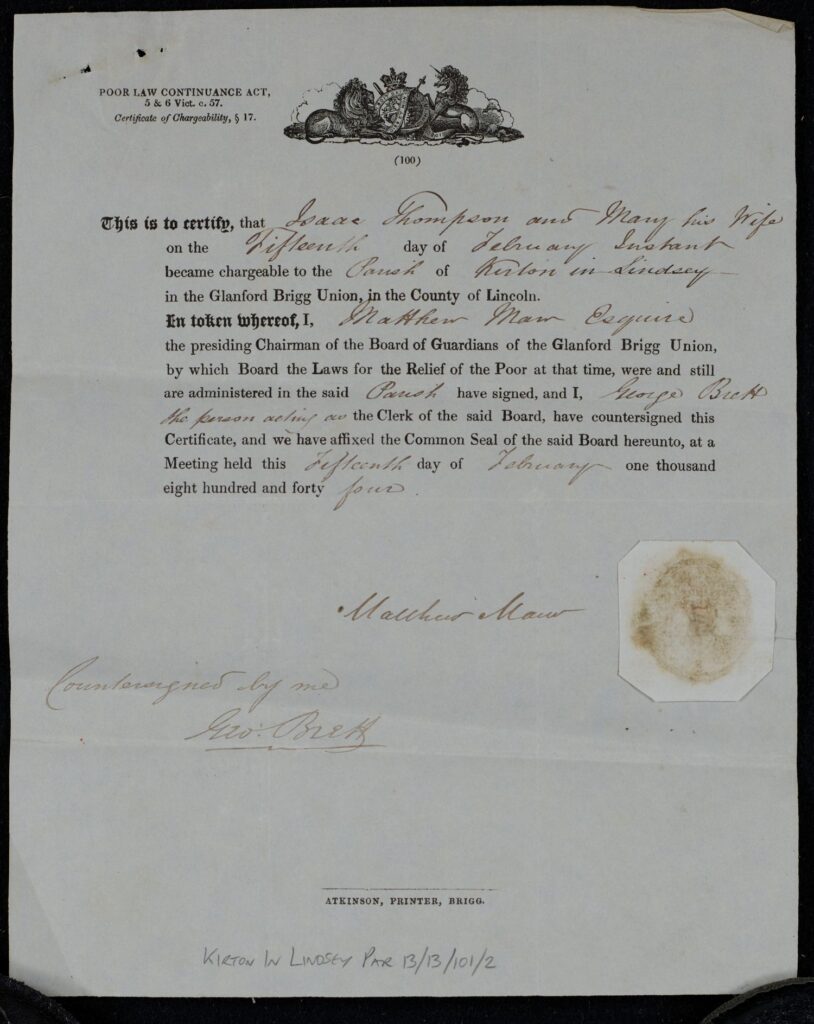 POOR LAW CONTINUANCE ACT,
5 & 6 Vict. c. 57.
Certificate of Chargeability, § 17.
(100)
This is to certify, that Isaac Thompson and Mary his Wife
on the Fifteenth day of February Instant
became chargeable to the Parish of Kirton in Lindsey
in the Glanford Brigg Union, in the County of Lincoln.
In token whereof, I, Matthew Maw Esquire
the presiding Chairman of the Board of Guardians of the Glanford Brigg Union,
by which Board the Laws for the Relief of the Poor at that time, were and still
are administered in the said Parish have signed, and I, George Brett
the person acting as the Clerk of the said Board, have countersigned this
Certificate, and we have affixed the Common Seal of the said Board hereunto, at a
Meeting held this Fifteenth day of February one thousand
eight hundred and forty four.
Matthew Maw
Countersigned by me
Geo. Brett
ATKINSON, PRINTER, BRIGG.
KIRTON IN LINDSEY PAR 13/13/101/2